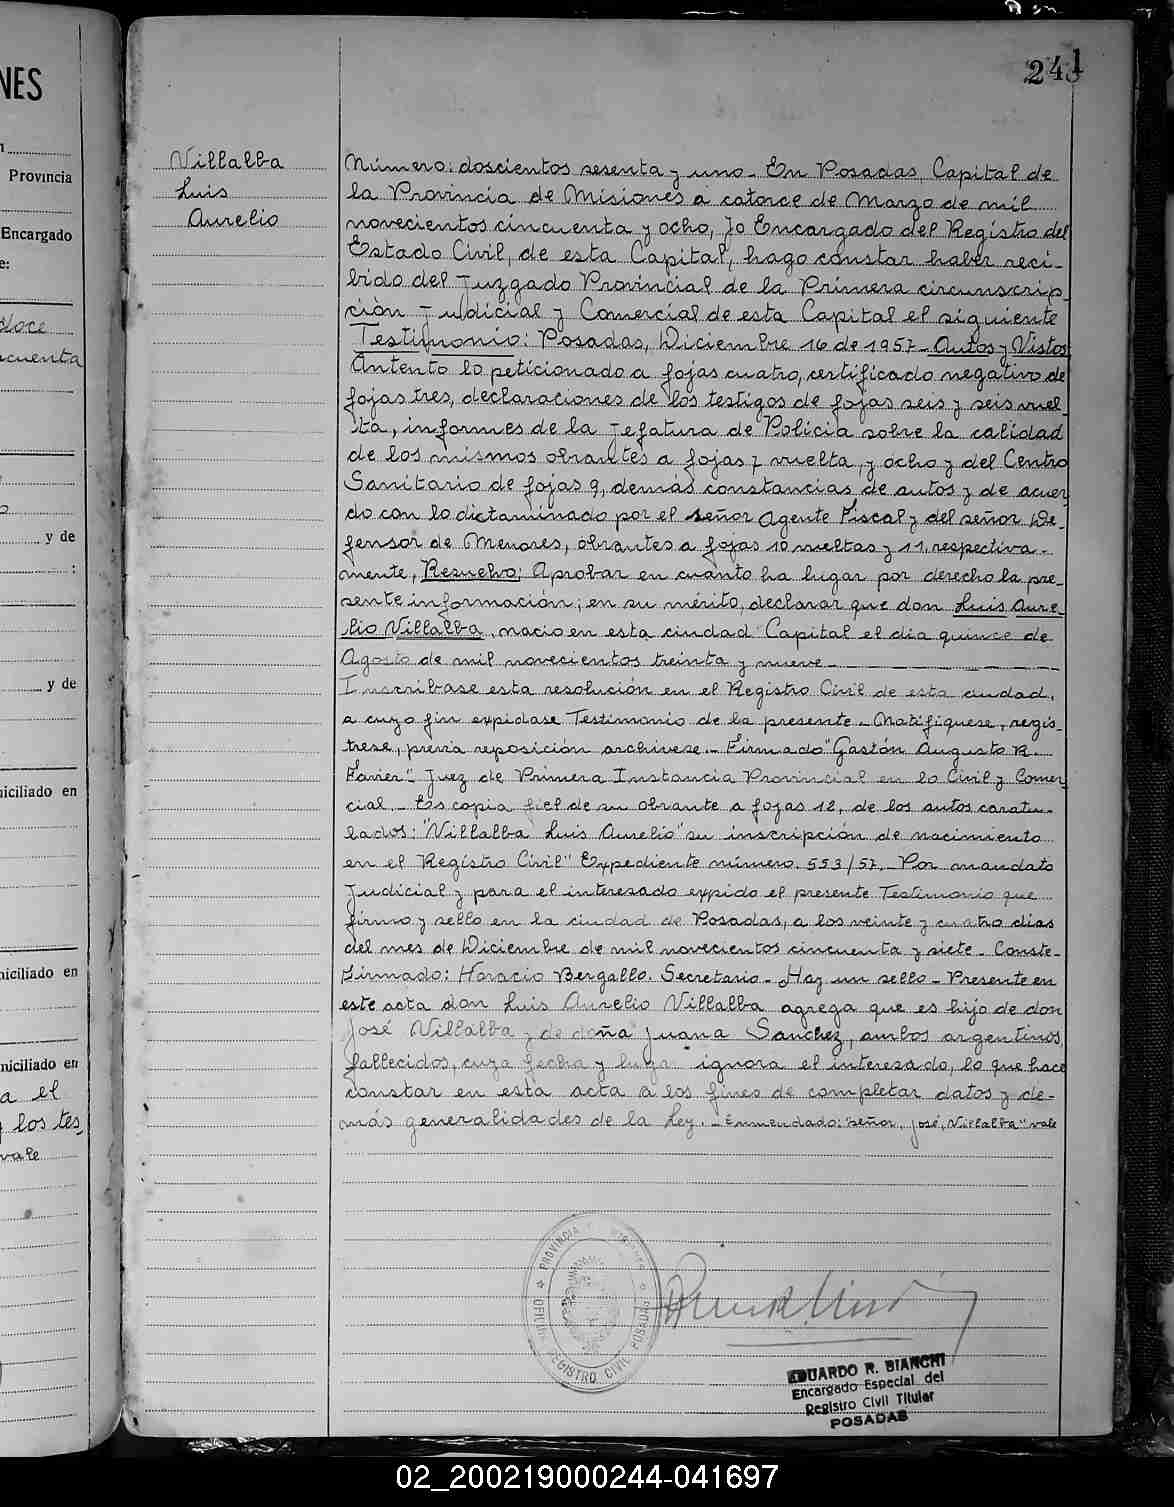 NES
Provincia
Encargado
e:
doce
cuenta
y de
y de
niciliado en
niciliado en
niciliado en
a el
y los tes,
vale
241
Villalba
Luis
Aurelio
Número: doscientos sesenta y uno - En Posadas, Capital de
la Provincia de Misiones a catorce de Marzo de mil
novecientos cincuenta y ocho, Yo Encargado del Registro del
Estado Civil, de esta Capital, hago constar haber reci-
bido del Juzgado Provincial de la Primera circunscrip-
ción Judicial y Comercial de esta Capital el siguiente
Testimonio: Posadas, Diciembre 16 de 1957 - Autos y Vistos
Antento lo peticionado a fojas cuatro, certificado negativo de
fojas tres, declaraciones de los testigos de fojas seis y seis vuel-
ta, informes de la Jefatura de Policia sobre la calidad
de los mismos obrantes a fojas 7 vuelta, y ocho y del Centro
Sanitario de fojas 9, demás constancias de autos y de acuer
do con lo dictaminado por el señor Agente Fiscal y del señor De-
fensor de Menores, obrantes a fojas 10 vueltas y 11, respectiva-
mente, Resuelvo: Aprobar en cuanto ha lugar por derecho la pre-
sente información; en su mérito, declarar que don Luis Aure-
lio Villalba, nacio en esta ciudad Capital el dia quince de
Agosto de mil novecientos treinta y nueve -
Inscribase esta resolución en el Registro Civil de esta ciudad,
a cuyo fin expidase Testimonio de la presente - Notifiquese, regis-
trese, previa reposición archivese. - Firmado "Gastón Augusto R.
Favier" - Juez de Primera Instancia Provincial en lo Civil y Comer-
cial. - Es copia fiel de su obrante a fojas 12, de los autos caratu-
lados: "Villalba Luis Aurelio" su inscripción de nacimiento
en el Registro Civil" Expediente número 553/57. - Por mandato
Judicial y para el interesado expido el presente Testimonio que
firmo y sello en la ciudad de Posadas, a los veinte y cuatro dias
del mes de Diciembre de mil novecientos cincuenta y siete - Conste -
Firmado: Horacio Bergallo. Secretario - Hay un sello - Presente en
este acta don Luis Aurelio Villalba agrega que es hijo de don
José Villalba y de doña Juana Sanchez, ambos argentinos,
fallecidos, cuya fecha y lugar ignora el interesado, lo que hace
constar en esta acta a los fines de completar datos y de-
más generalidades de la Ley. - Enmendado: "señor, José, Villalba" vale
PROVINCIA MISIONES
OFICINA REGISTRO CIVIL POSADAS
EDUARDO R. BIANCHI
Encargado Especial del
Registro Civil Titular
POSADAS
02_200219000244-041697